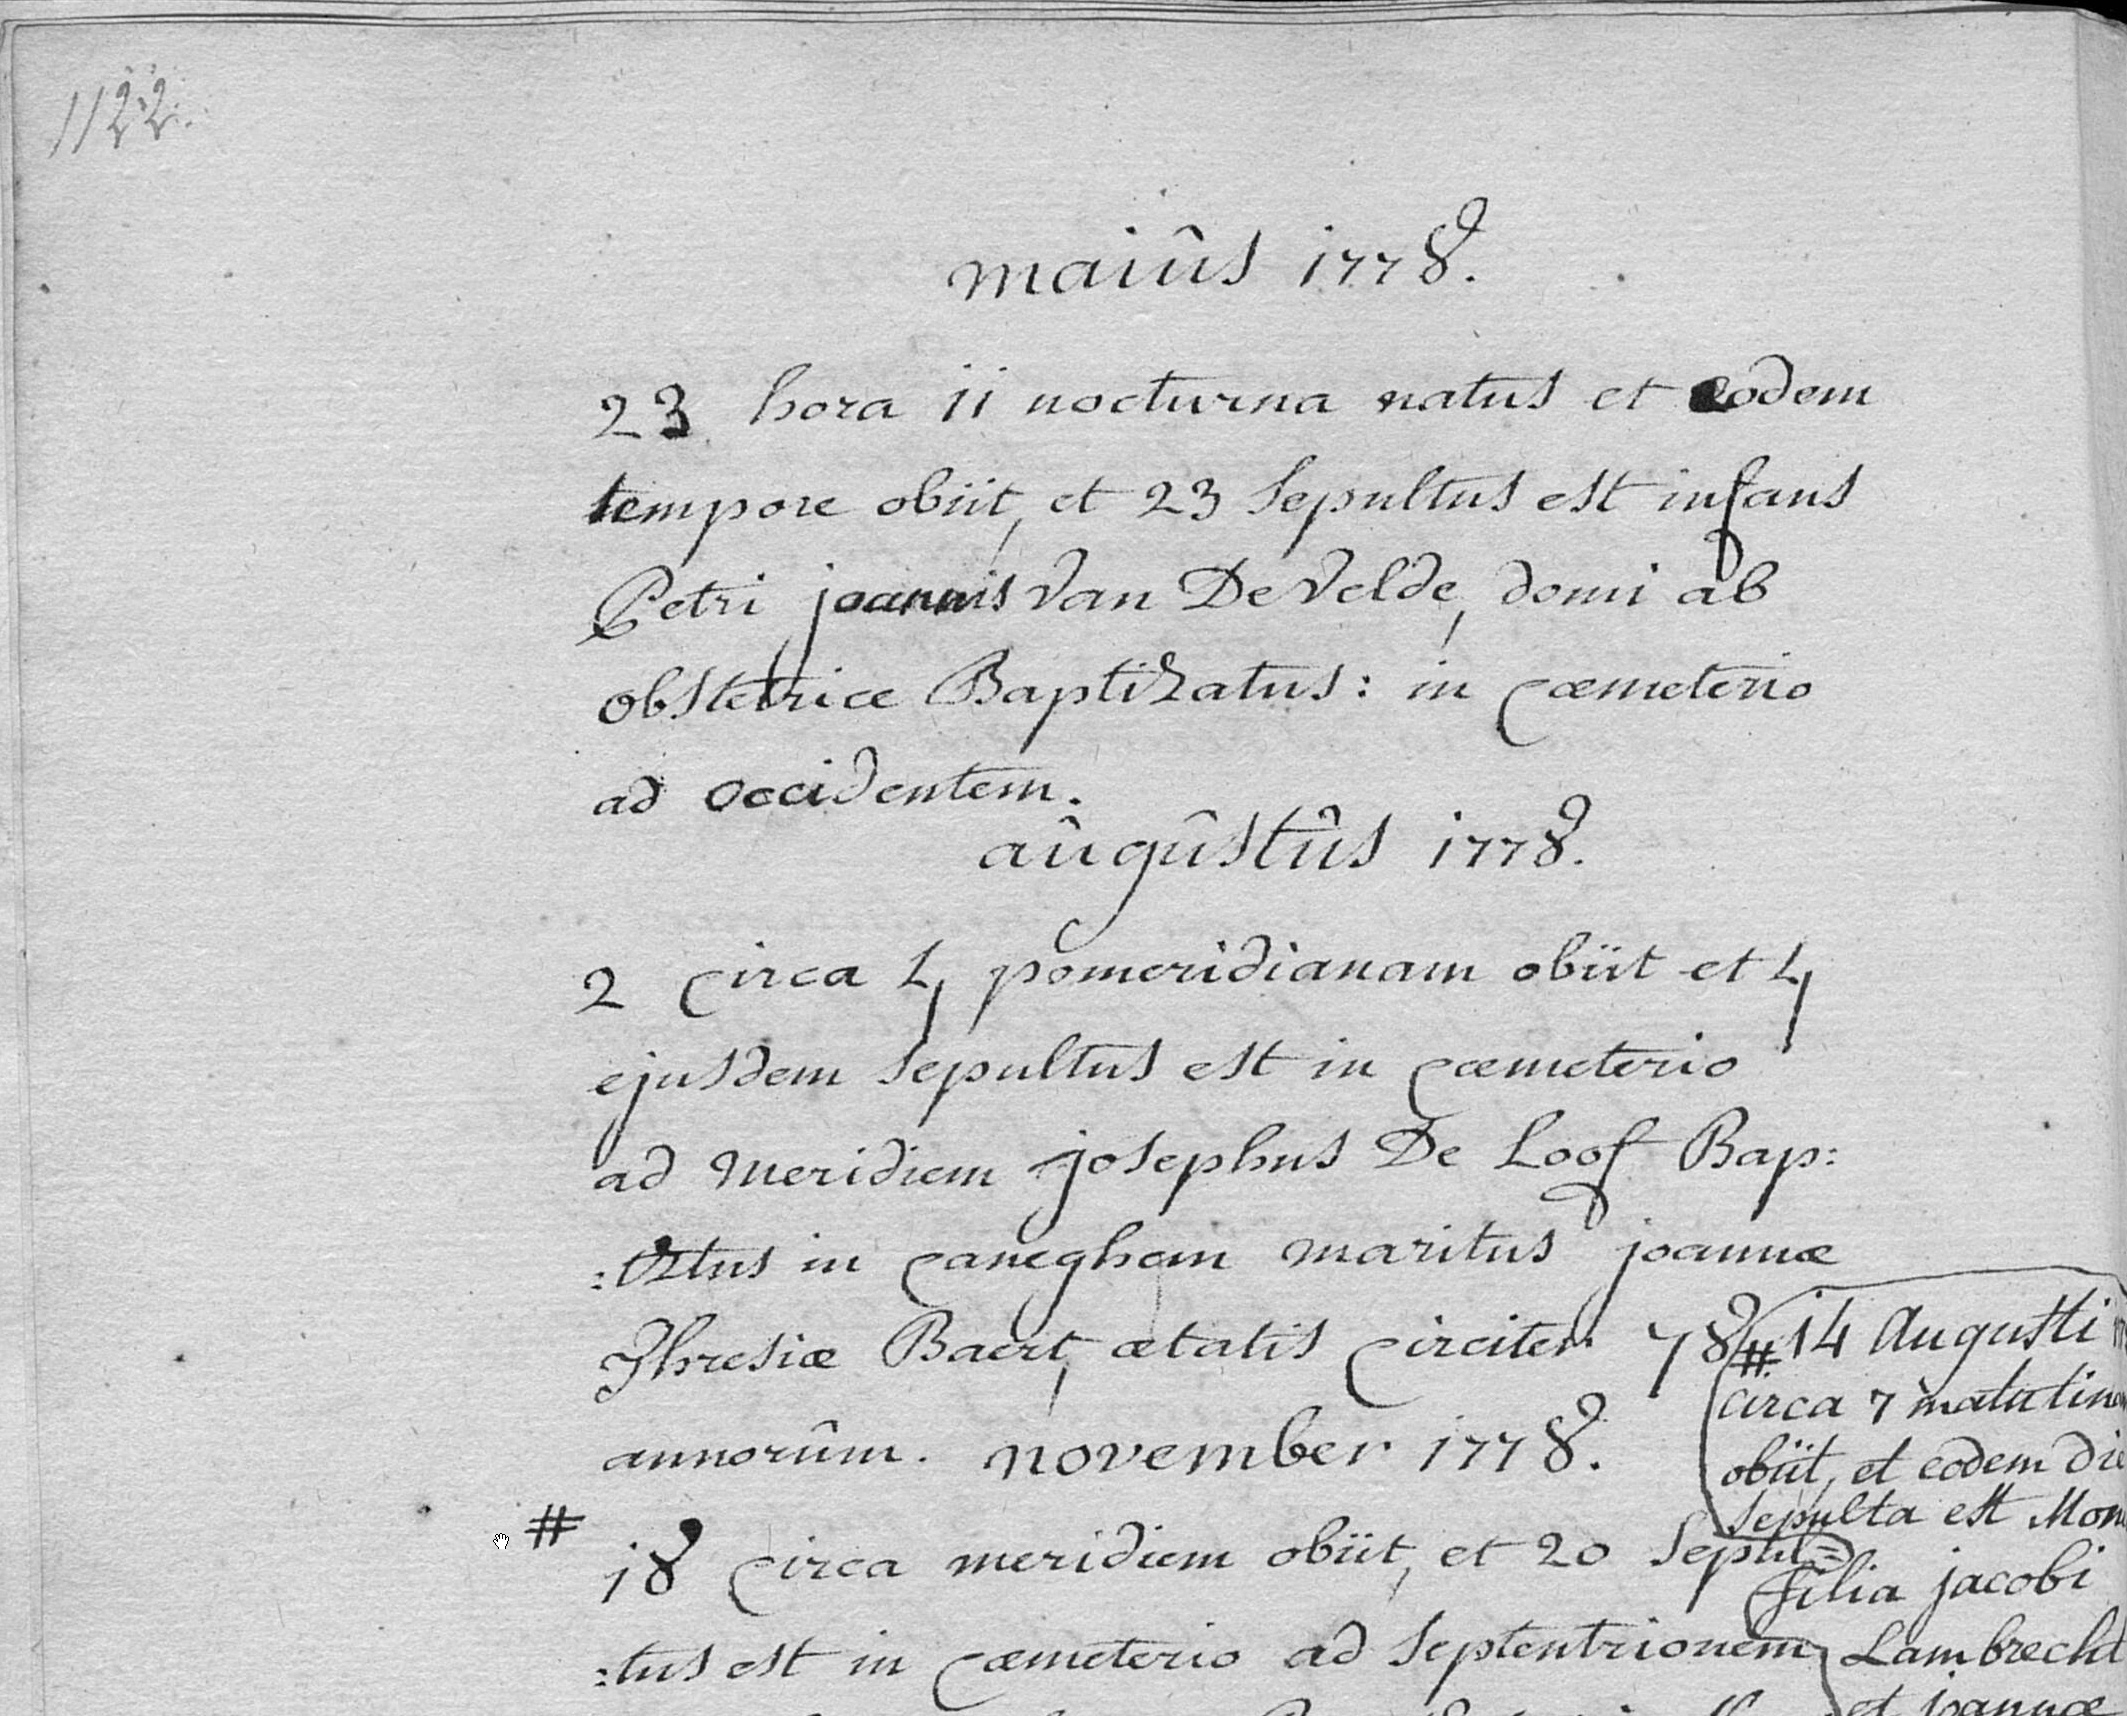 1122.
maiûs 1778.
23 hora 11 nocturna natus et eodem
tempore obiit, et 23 sepultus est infans
Petri joannis van De Velde, domi ab
obstetrice Baptizatus: in cœmeterio
ad occidentem.
aûgûstûs 1778.
2 circa 4 pomeridianam obiit et 4
ejusdem sepultus est in cœmeterio
ad meridiem josephus De Loof Bap:
:tiztus in caneghem maritus joannæ
Thresiæ Baert, ætatis circiter 78
annorûm. november 1778.
# 18 circa meridiem obiit, et 20 sepul=
:tus est in cœmeterio ad septentrionem
# 14 Augusti
circa 7 matutin
obiit, et eodem die
sepulta est Mon
filia jacobi
Lambrecht
et joannæ